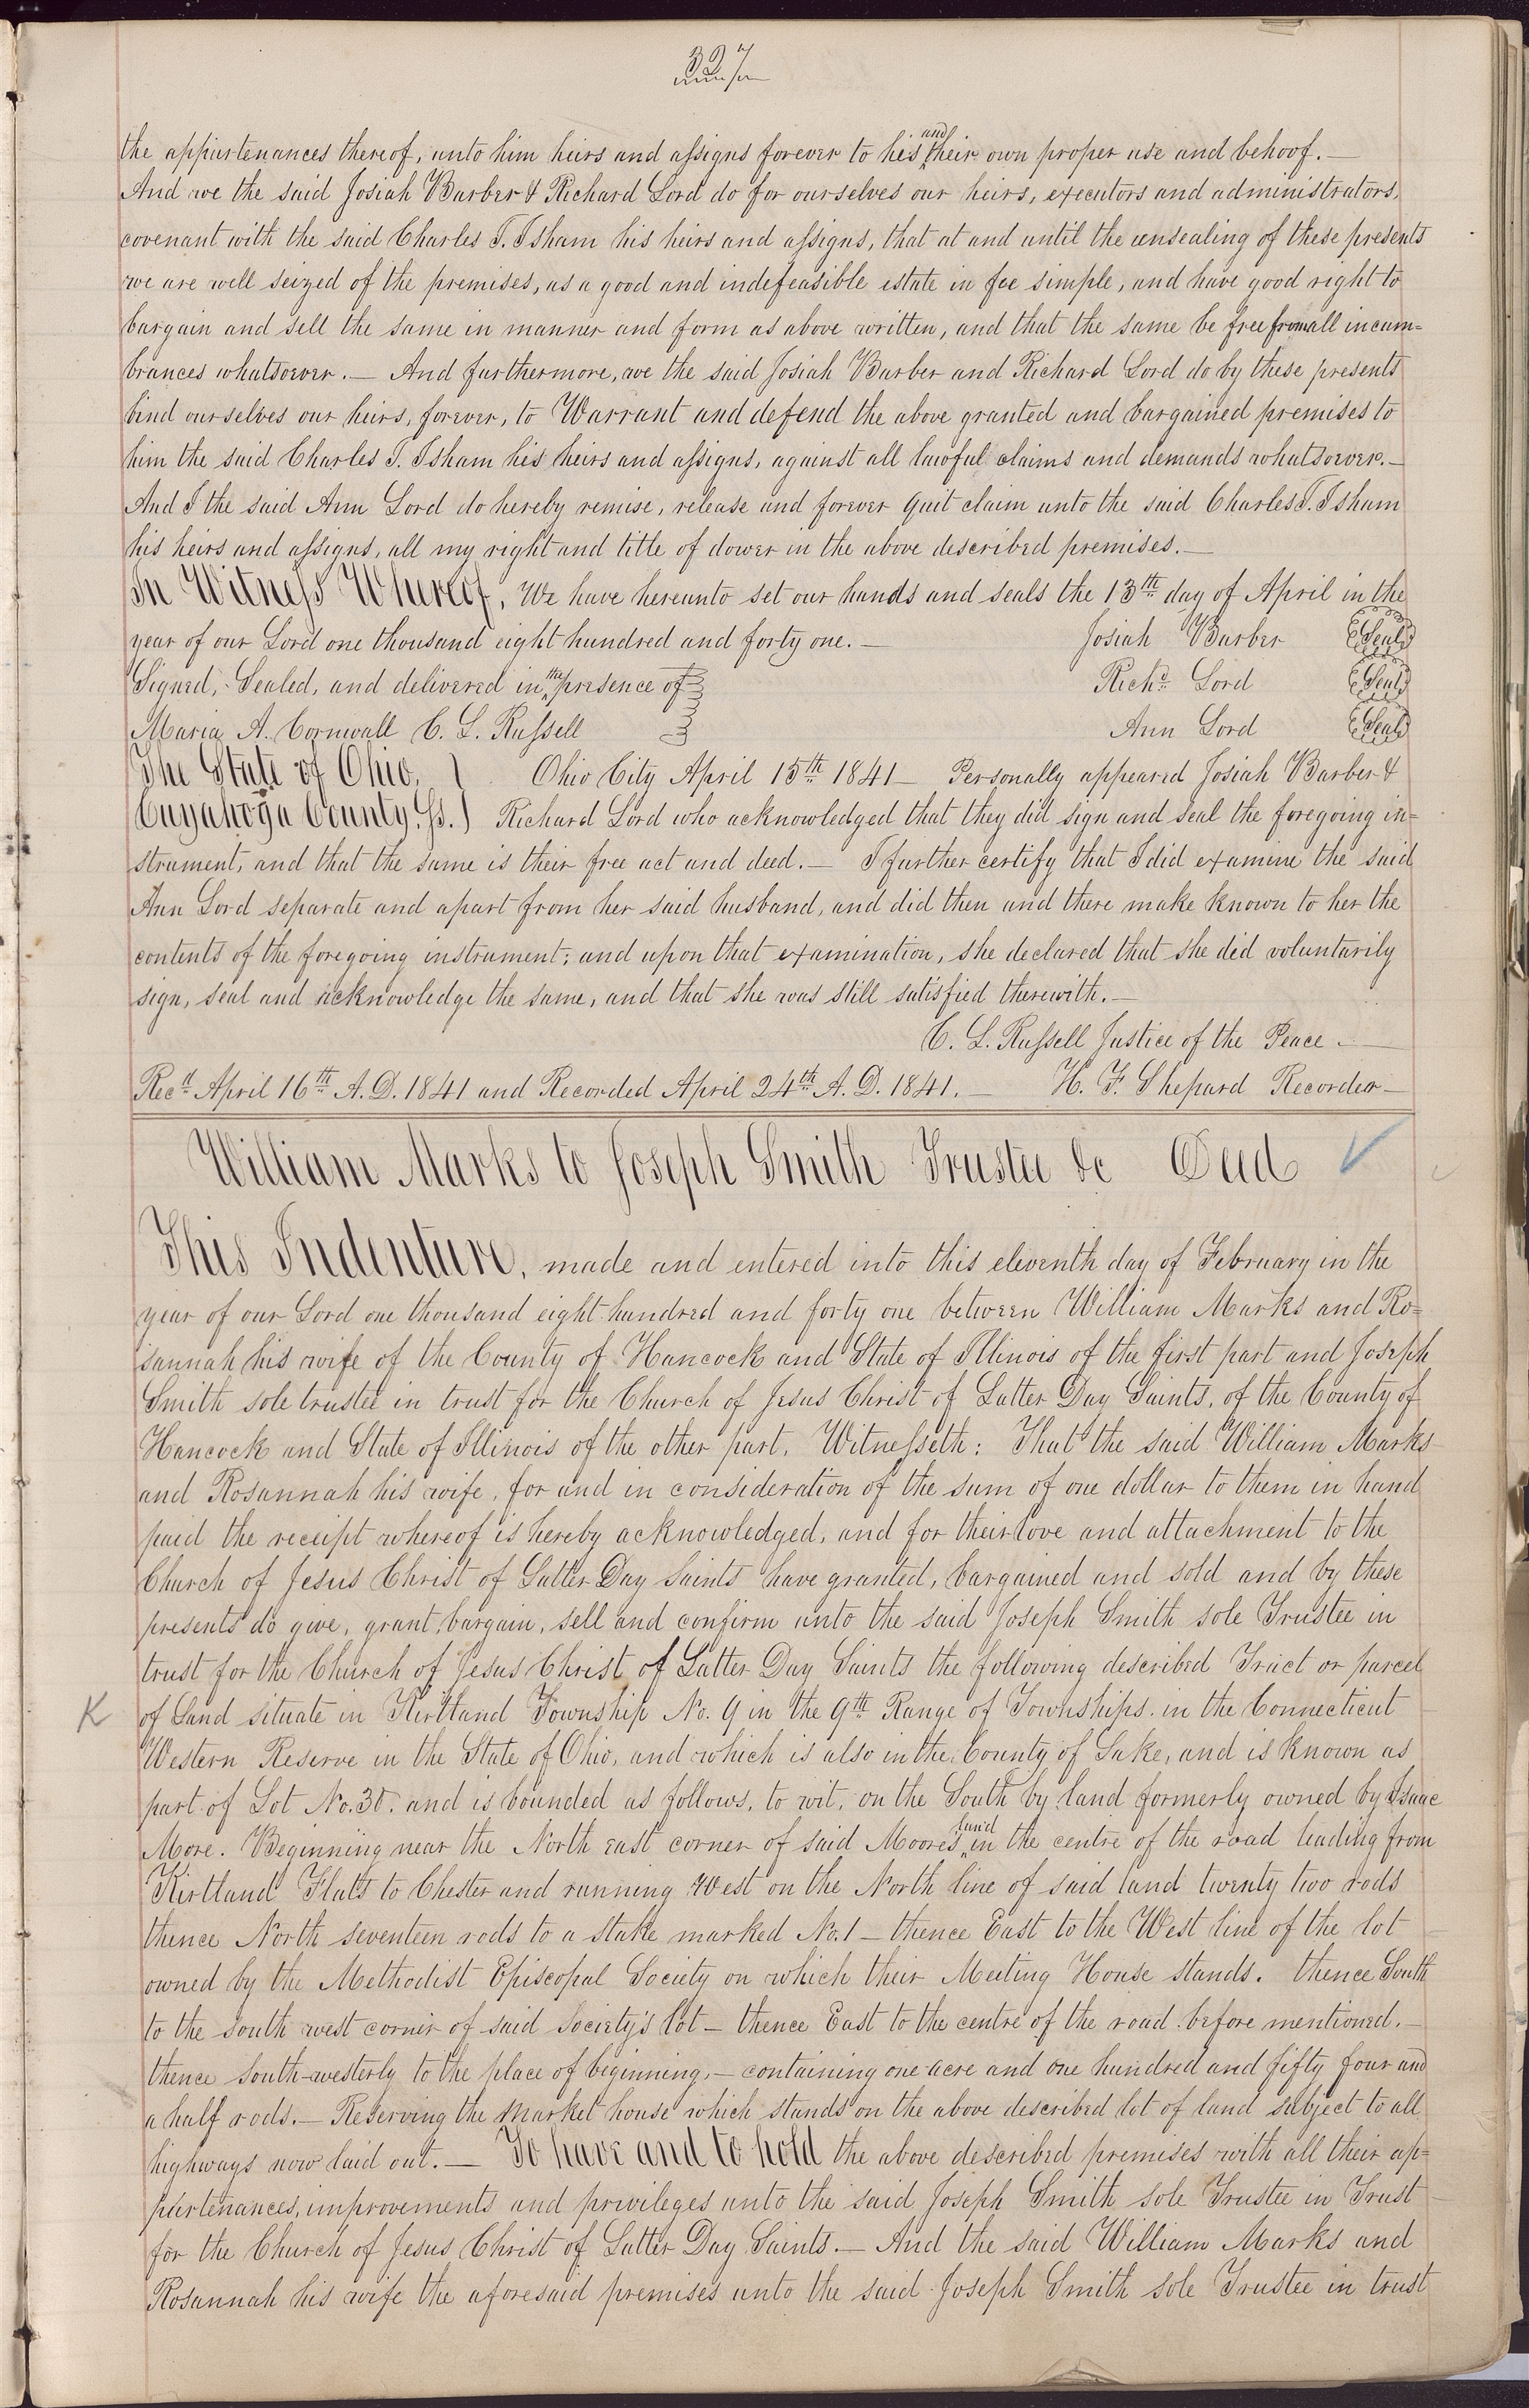 327
the appurtenances thereof, unto him heirs and assigns forever to his and their own proper use and behoof. —
And we the said Josiah Barber & Richard Lord do for ourselves our heirs, executors and administrators,
covenant with the said Charles T. Isham his heirs and assigns, that at and until the ensealing of these presents
we are well seized of the premises, as a good and indefeasible estate in fee simple, and have good right to
bargain and sell the same in manner and form as above written, and that the same be free from all incum=
brances whatsoever. — And furthermore, we the said Josiah Barber and Richard Lord do by these presents
bind ourselves our heirs, forever, to Warrant and defend the above granted and bargained premises to
him the said Charles T. Isham his heirs and assigns, against all lawful claims and demands whatsoever. —
And I the said Ann Lord do hereby remise, release and forever quit claim unto the said Charles T. Isham
his heirs and assigns, all my right and title of dower in the above described premises. —
In Witness Whereof, We have hereunto set our hands and seals the 13th day of April in the
year of our Lord one thousand eight hundred and forty one. — Josiah Barber Seal
Signed, Sealed, and delivered in the presence of Richd Lord Seal
Maria A. Cornwall C. L. Russell Ann Lord Seal
The State of Ohio, } Ohio City April 15th 1841 — Personally appeared Josiah Barber &
Cuyahoga County. ss. } Richard Lord who acknowledged that they did sign and seal the foregoing in=
strument, and that the same is their free act and deed. — I further certify that I did examine the said
Ann Lord separate and apart from her said husband, and did then and there make known to her the
contents of the foregoing instrument; and upon that examination, she declared that she did voluntarily
sign, seal and acknowledge the same, and that she was still satisfied therewith. —
C. L. Russell Justice of the Peace. —
Recd April 16th A.D. 1841 and Recorded April 24th A.D. 1841. — H. F. Shepard Recorder —
William Marks to Joseph Smith Trustee &c Deed
This Indenture, made and entered into this eleventh day of February in the
year of our Lord one thousand eight hundred and forty one between William Marks and Ro=
sannah his wife of the County of Hancock and State of Illinois of the first part and Joseph
Smith sole trustee in trust for the Church of Jesus Christ of Latter Day Saints, of the County of
Hancock and State of Illinois of the other part. Witnesseth: That the said William Marks
and Rosannah his wife, for and in consideration of the sum of one dollar to them in hand
paid the receipt whereof is hereby acknowledged, and for their love and attachment to the
Church of Jesus Christ of Latter Day Saints have granted, bargained and sold and by these
presents do give, grant, bargain, sell and confirm unto the said Joseph Smith sole Trustee in
trust for the Church of Jesus Christ of Latter Day Saints the following described Tract or parcel
K of Land situate in Kirtland Township No. 9 in the 9th Range of Townships in the Connecticut
Western Reserve in the State of Ohio, and which is also in the County of Lake, and is known as
part of Lot No. 30. and is bounded as follows, to wit, on the South by land formerly owned by Isaac
More. Beginning near the North east corner of said Moores land in the centre of the road leading from
Kirtland Flats to Chester and running West on the North line of said land twenty two rods
thence North seventeen rods to a stake marked No. 1 — thence East to the West line of the lot
owned by the Methodist Episcopal Society on which their Meeting House stands. thence South
to the south west corner of said society's lot — thence East to the centre of the road before mentioned. —
thence south-westerly to the place of beginning, — containing one acre and one hundred and fifty four and
a half rods. — Reserving the Market house which stands on the above described lot of land subject to all
highways now laid out. — To have and to hold the above described premises with all their ap=
purtenances, improvements and privileges unto the said Joseph Smith sole Trustee in Trust
for the Church of Jesus Christ of Latter Day Saints. — And the said William Marks and
Rosannah his wife the aforesaid premises unto the said Joseph Smith sole Trustee in trust